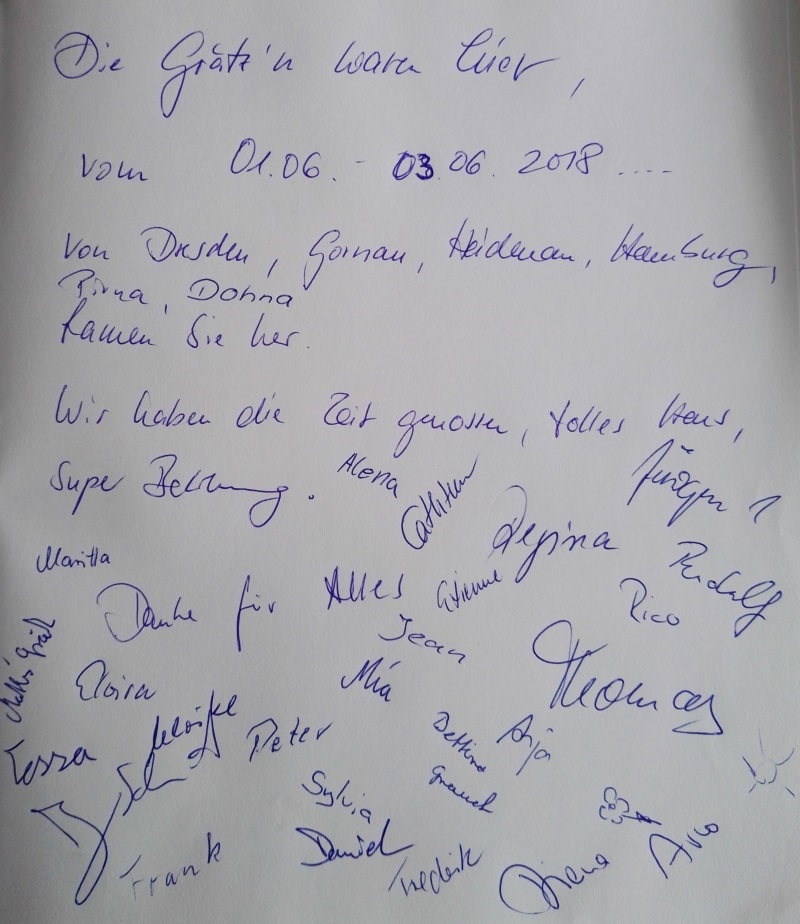 Die Grätz'n waren hier,
vom 01.06. - 03.06. 2018 ....
Von Dresden, Gornau, Heidenau, Hamburg,
Pirna, Dohna
kamen Sie her.
Wir haben die Zeit genossen, tolles Haus,
Super Betreuung.
Alena
Jürgen
Regina
Rudolf
Maritta
Danke für Alles
Etienne
Rico
Jean
Eloisa
Mia
Thomas
Tessa
Peter
Bettina
Anja
Sylvia
Daniel
Frank
Frederik
Diana